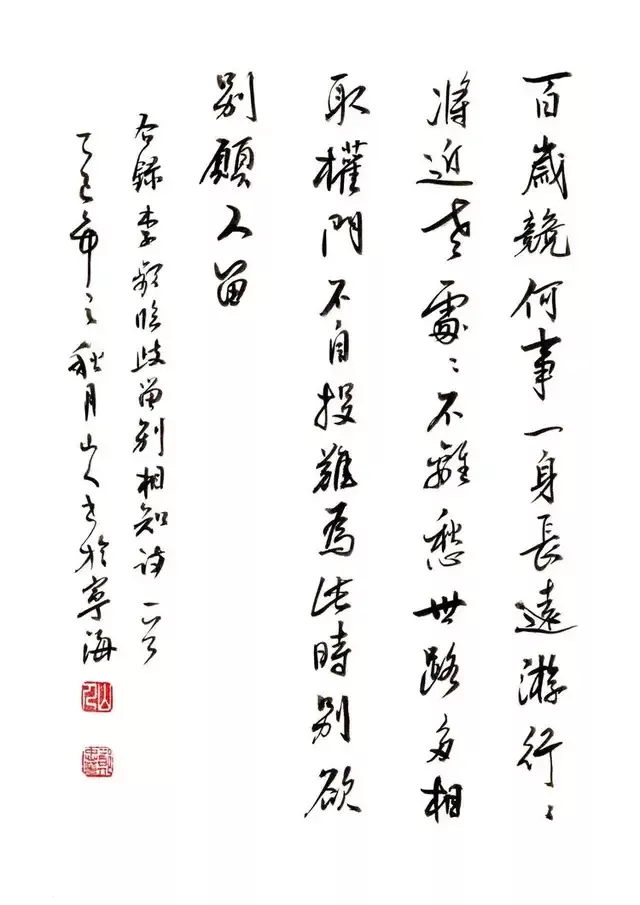 百歲競何事一身長遠游行〻
將近老處〻不離愁世路多相
取權門不自投難爲此時別欲
別願人留
右錄李頻臨歧留別相知詩一首
乙巳年之秋月山人書於寧海
山人